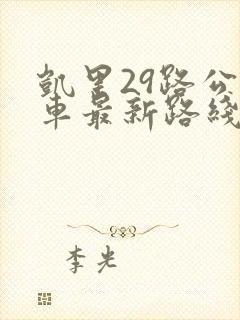 凯里29路公
车最新路线
李光